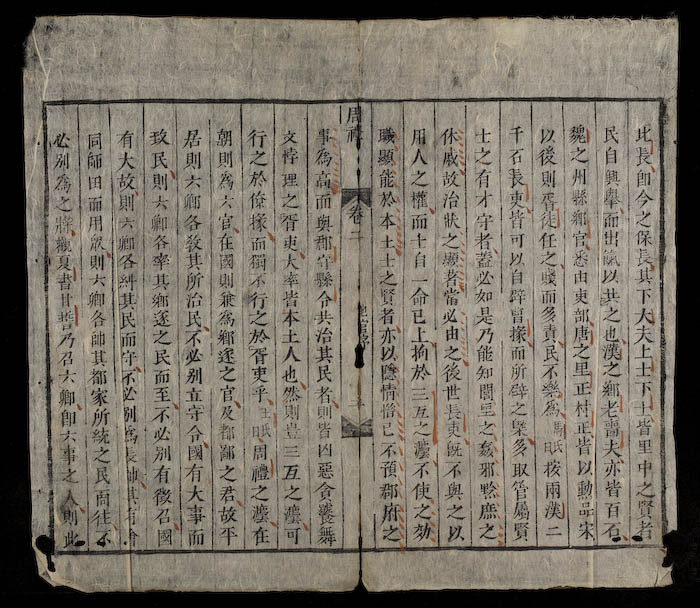 此長即今之保長其下大夫上士下士皆里中之賢者
民自興舉而出賦以共之也漢之鄉老嗇夫亦皆百石
魏之州縣鄉官悉由吏部唐之里正村正皆以勳品宋
以後則胥徒任之賤而多責民不樂為馬氏核兩漢二
千石長吏皆可以自辟曾掾而所辟之槩多取管屬賢
士之有才守者蓋必如是乃能知閭里之姦邪黔庶之
休戚故治狀之顯者當必由之後世長吏既不與之以
用人之權而士自一命已上拘於三互之灋不使之効
職顯能於本土士之賢者亦以隱情惜己不預郡府之
周禮 卷二
事為高而與郡守縣令共治其民者則皆凶惡貪饕舞
文悖理之胥吏大率皆本土人也然則豈三互之灋可
行之於僚掾而獨不行之於胥吏乎王氏周禮之灋在
朝則為六官在國則兼為鄉遂之官及都鄙之君故平
居則六卿各敎其所治民不必別立守令國有大事而
致民則六卿各率其鄉遂之民而至不必別有徵召國
有大故則六卿各糾其民而守不必別為長帥其有會
同師田而用眾則六卿各帥其都家所統之民而往不
必別為之將觀夏書甘誓乃召六卿即六事之人則此